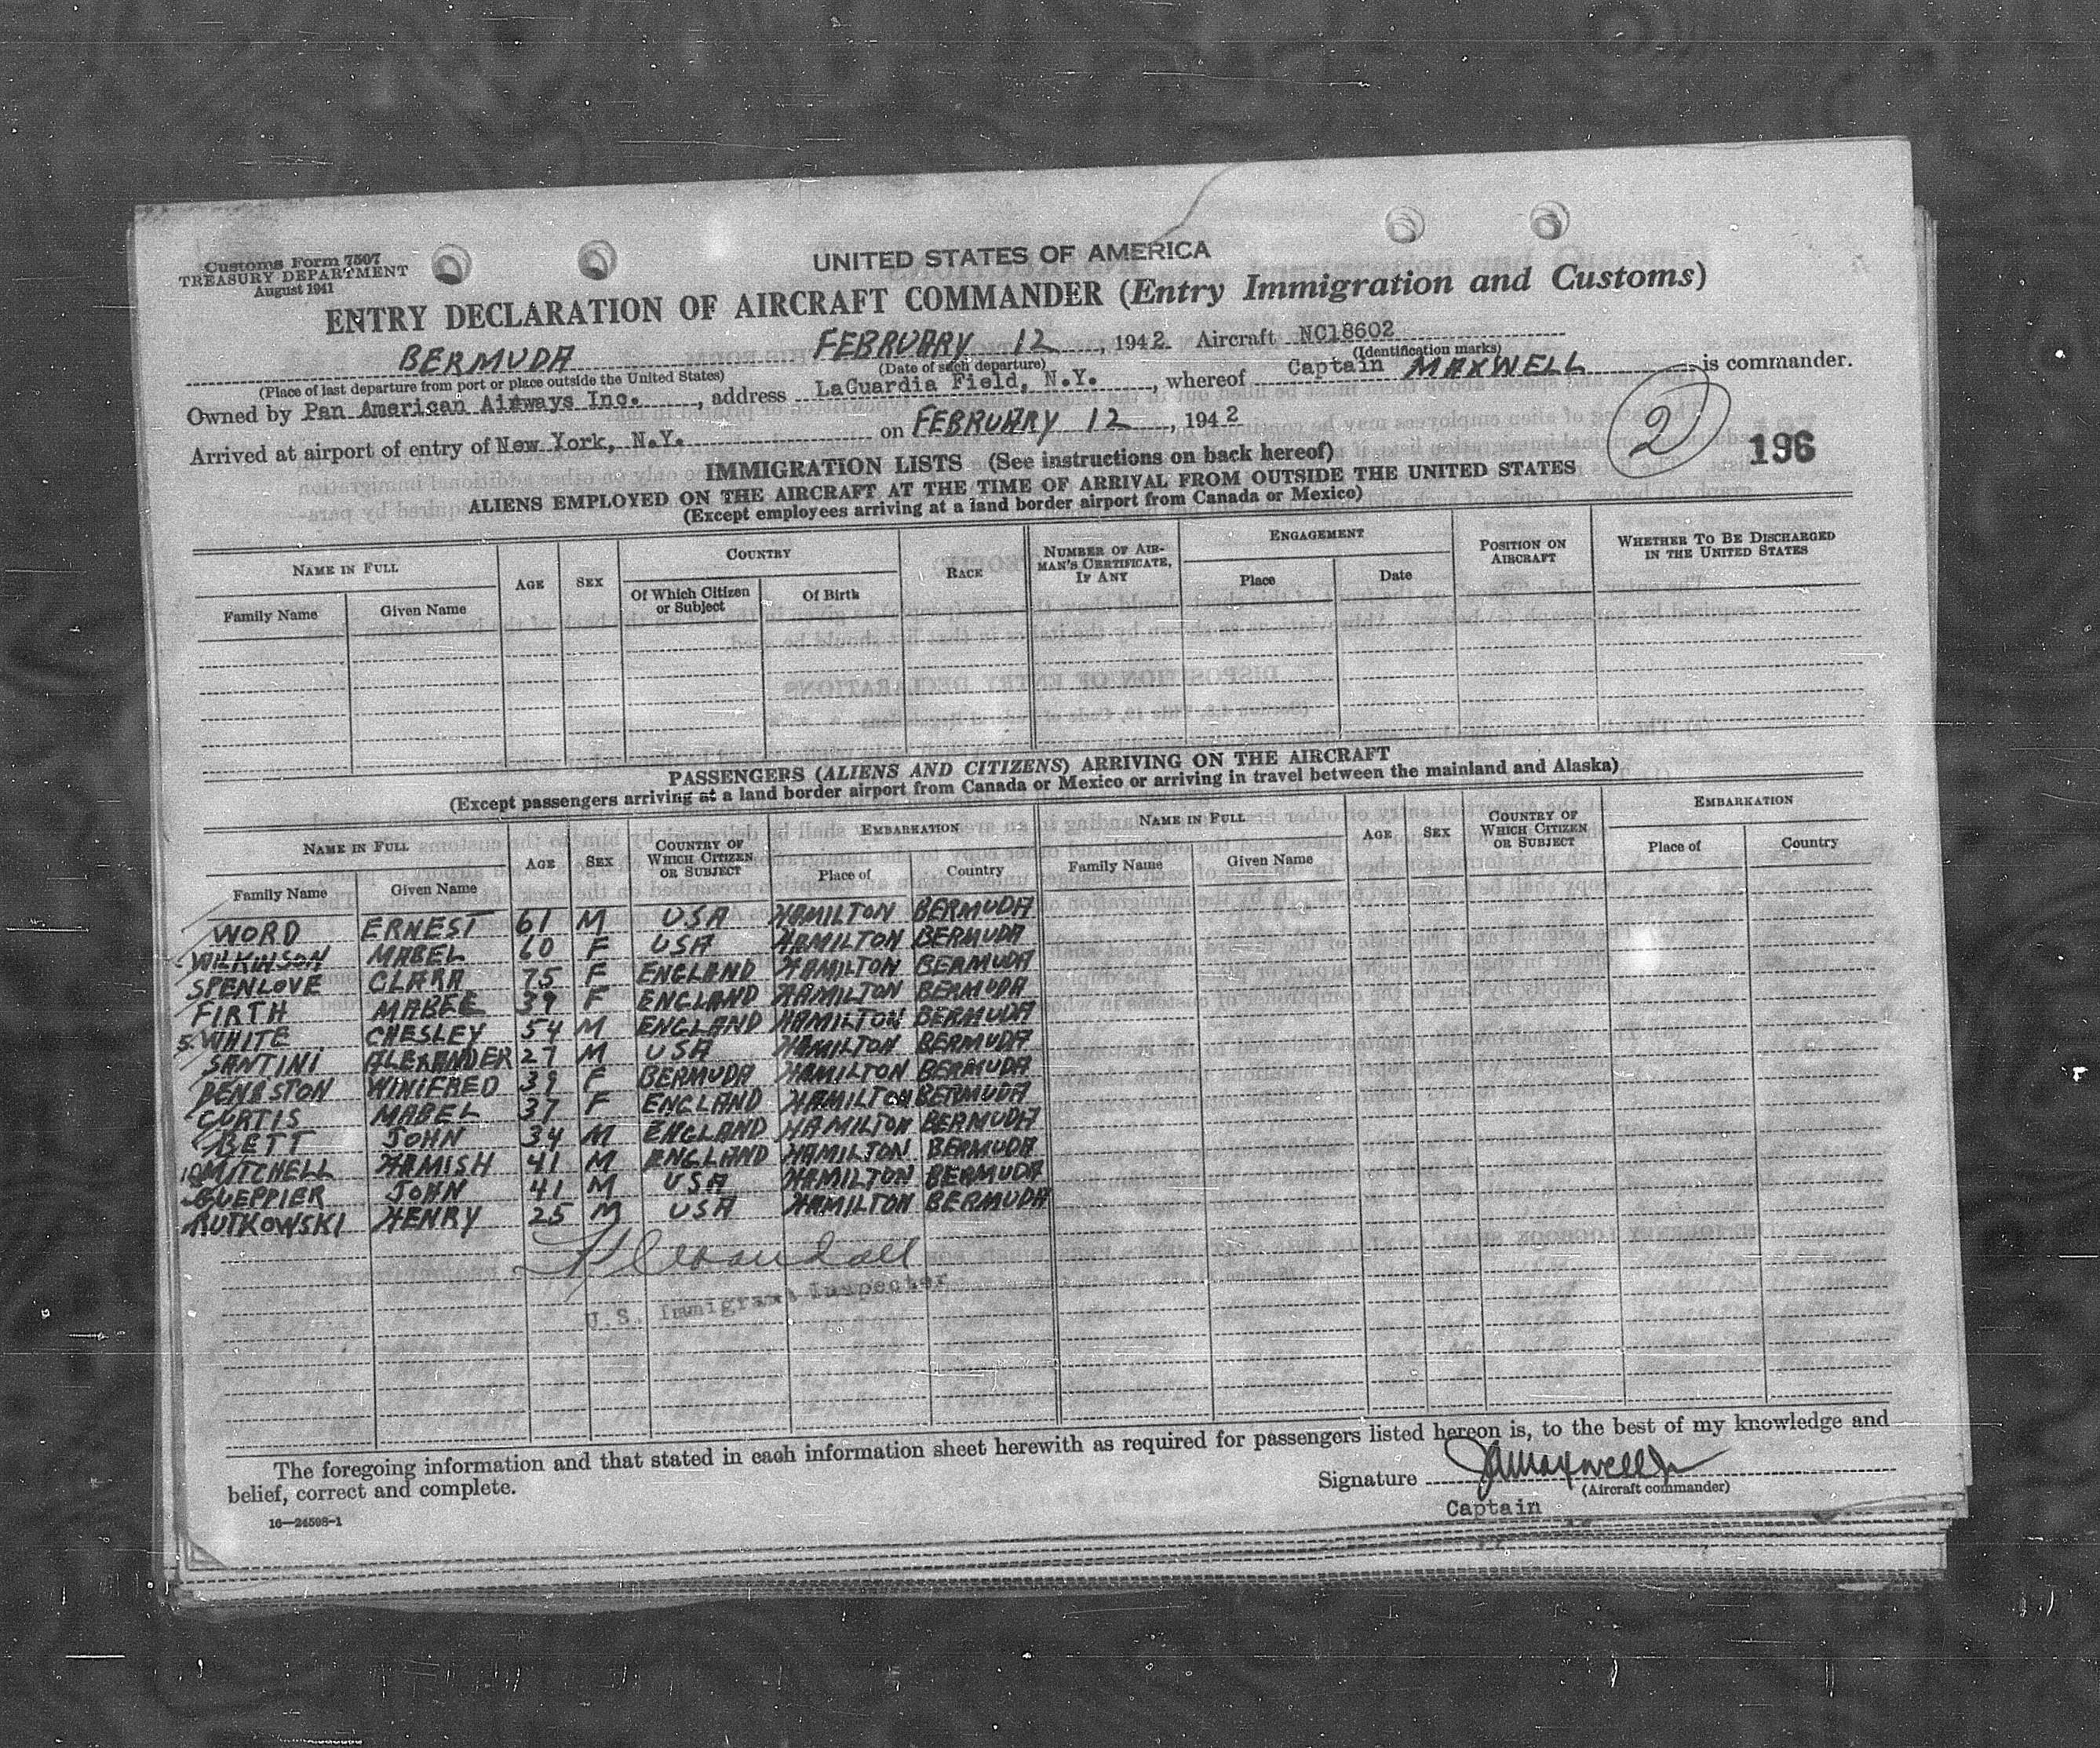 Customs Form 7507
TREASURY DEPARTMENT
August 1941
UNITED STATES OF AMERICA
ENTRY DECLARATION OF AIRCRAFT COMMANDER (Entry Immigration and Customs)
BERMUDA FEBRUARY 12, 1942 Aircraft NC18602
(Place of last departure from port or place outside the United States) (Date of such departure) (Identification marks)
Owned by Pan American Airways Inc., address LaGuardia Field, N.Y., whereof Captain MAXWELL is commander.
Arrived at airport of entry of New York, N.Y. on FEBRUARY 12, 1942
2 196
IMMIGRATION LISTS (See instructions on back hereof)
ALIENS EMPLOYED ON THE AIRCRAFT AT THE TIME OF ARRIVAL FROM OUTSIDE THE UNITED STATES
(Except employees arriving at a land border airport from Canada or Mexico)
NAME IN FULL AGE SEX COUNTRY RACE NUMBER OF AIRMAN'S CERTIFICATE, IF ANY ENGAGEMENT POSITION ON AIRCRAFT WHETHER TO BE DISCHARGED IN THE UNITED STATES
Family Name Given Name Of Which Citizen or Subject Of Birth Place Date
PASSENGERS (ALIENS AND CITIZENS) ARRIVING ON THE AIRCRAFT
(Except passengers arriving at a land border airport from Canada or Mexico or arriving in travel between the mainland and Alaska)
NAME IN FULL AGE SEX COUNTRY OF WHICH CITIZEN OR SUBJECT EMBARKATION NAME IN FULL AGE SEX COUNTRY OF WHICH CITIZEN OR SUBJECT EMBARKATION
Family Name Given Name Place of Country Family Name Given Name Place of Country
WORD ERNEST 61 M USA HAMILTON BERMUDA
WILKINSON MABEL 60 F USA HAMILTON BERMUDA
SPENLOVE CLARA 75 F ENGLAND HAMILTON BERMUDA
FIRTH MABEL 39 F ENGLAND HAMILTON BERMUDA
5. WHITE CHESLEY 54 M ENGLAND HAMILTON BERMUDA
SANTINI ALEXANDER 27 M USA HAMILTON BERMUDA
PENISTON WINIFRED 39 F BERMUDA HAMILTON BERMUDA
CURTIS MABEL 37 F ENGLAND HAMILTON BERMUDA
BETT JOHN 34 M ENGLAND HAMILTON BERMUDA
10 MITCHELL HAMISH 41 M ENGLAND HAMILTON BERMUDA
GUEPPIER JOHN 41 M USA HAMILTON BERMUDA
RUTKOWSKI HENRY 25 M USA HAMILTON BERMUDA
U.S. Immigrant Inspector
The foregoing information and that stated in each information sheet herewith as required for passengers listed hereon is, to the best of my knowledge and
belief, correct and complete.
Signature JAMaxwell Jr
(Aircraft commander)
Captain
16—24598-1